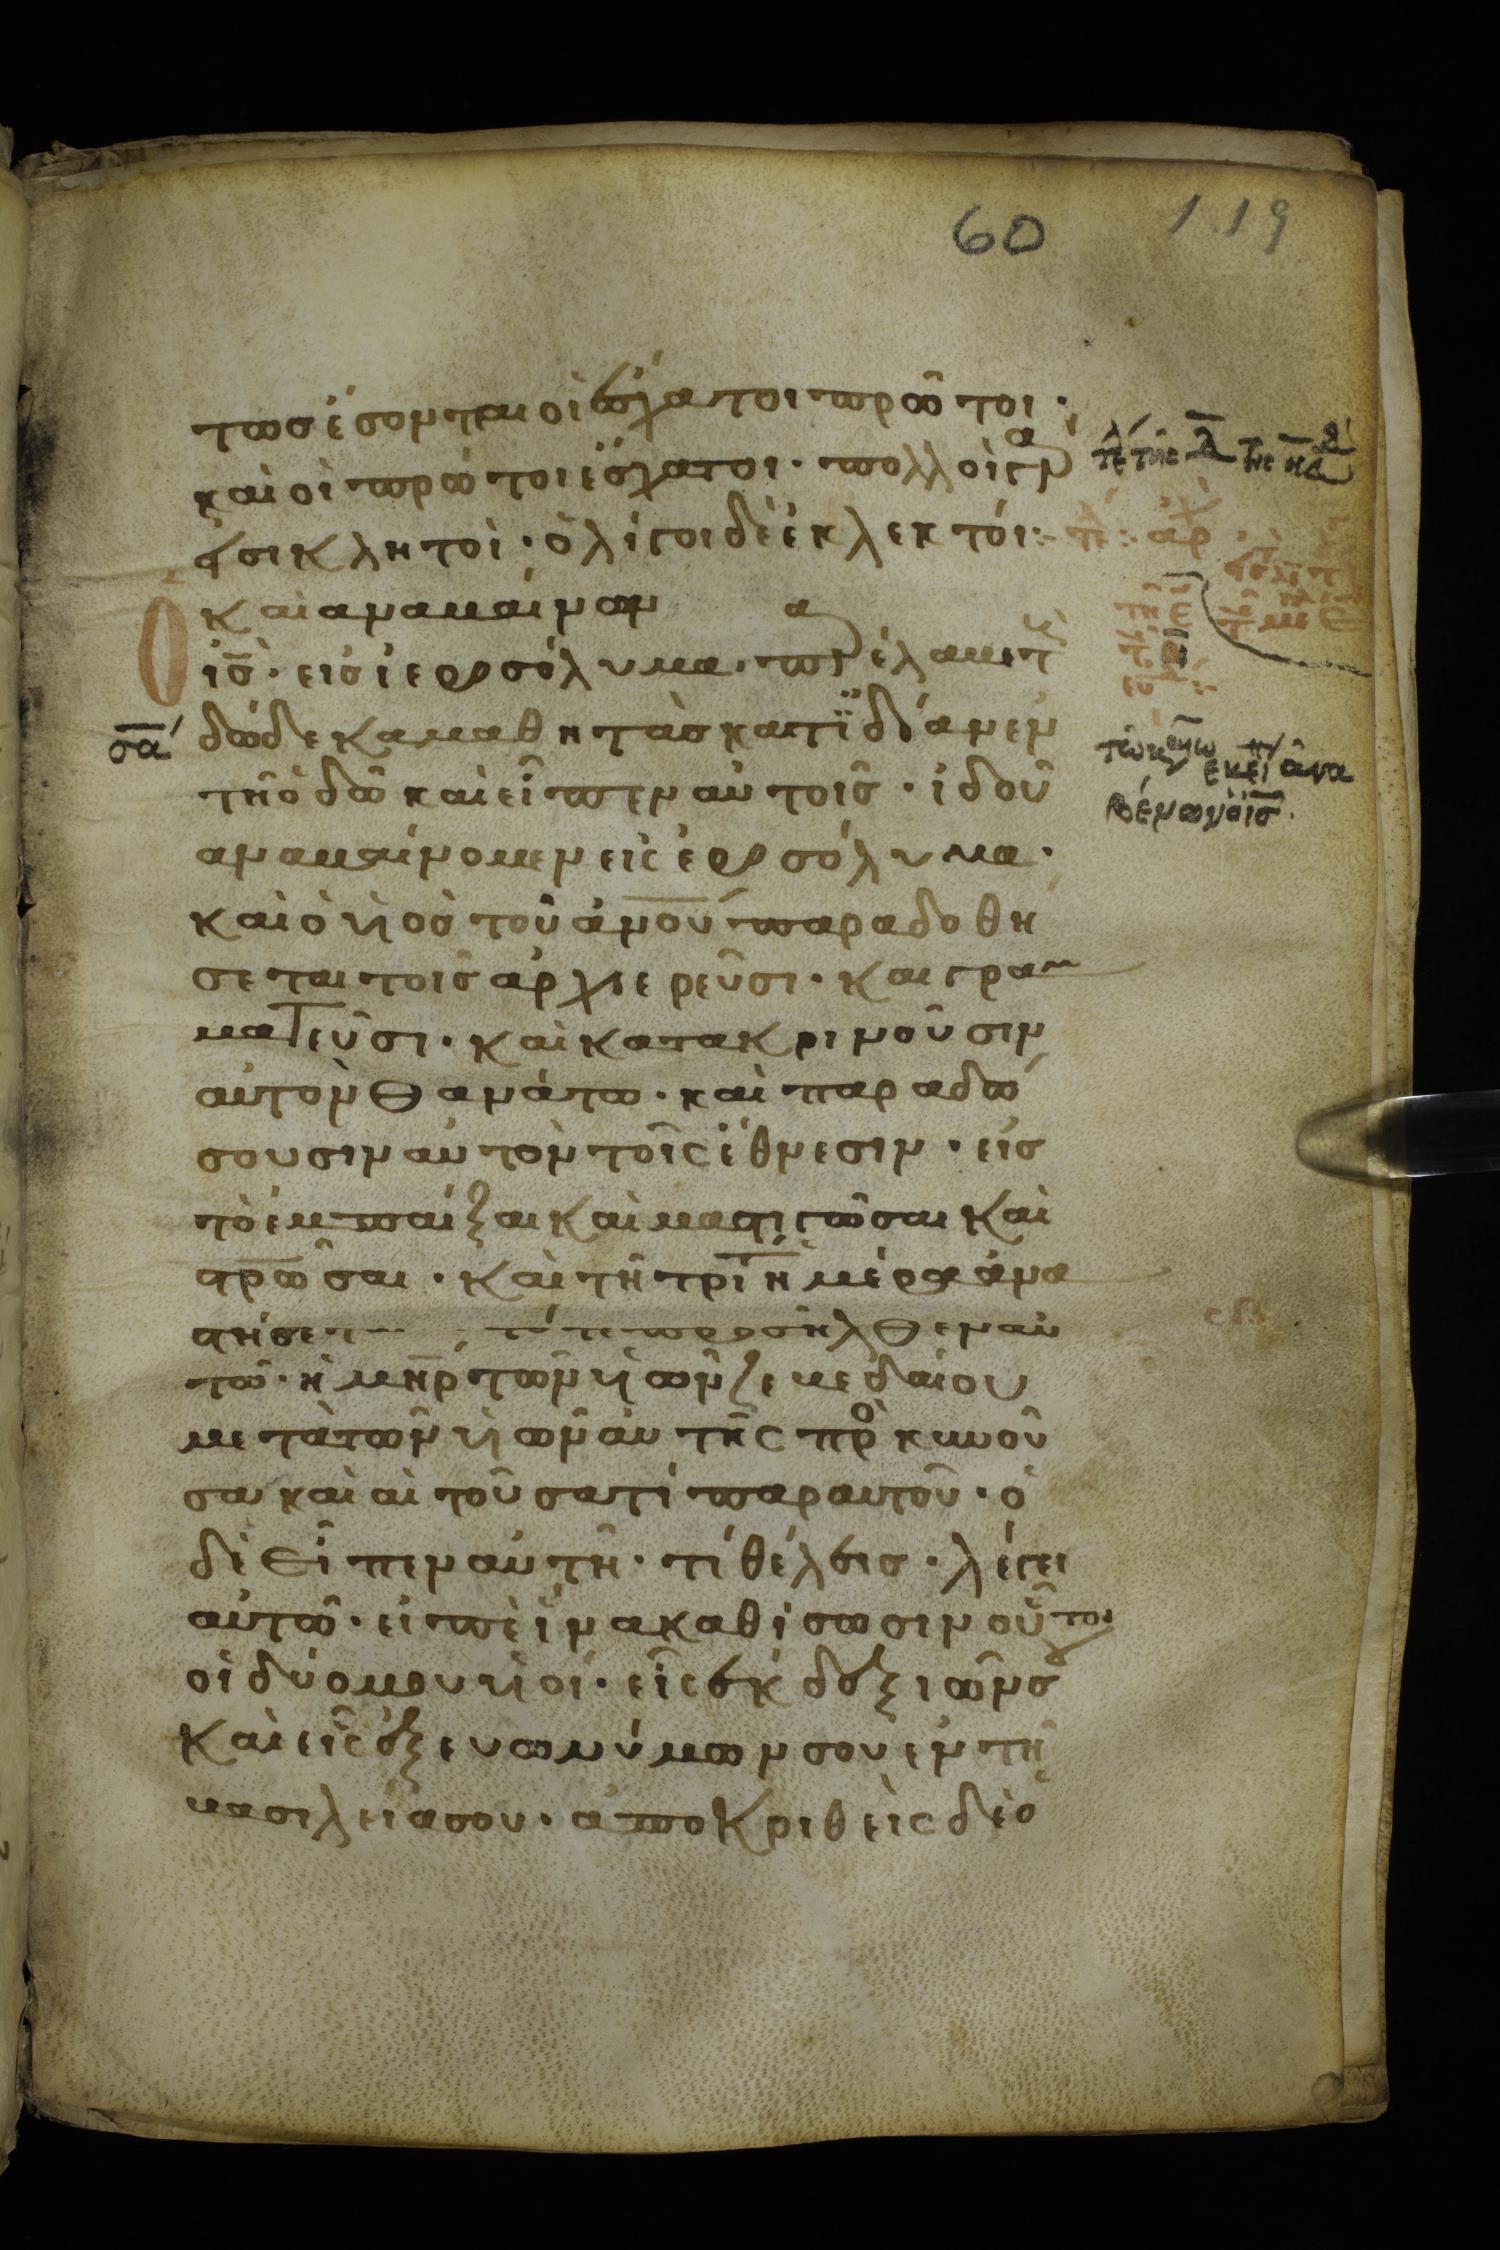 60 119
τωσ ἔσονται οἱ ἔσχατοι πρῶτοι·
καὶ οἱ πρῶτοι ἔσχατοι· πολλοὶ γάρ
εἰσι κλητοὶ· ὀλίγοι δὲ ἐκλεκτόι:
Καὶ ἀναβαίνων
ὁ ἰς̅· εἰσ ἱεροσόλυμα· παρέλαβε τ
σ̅α̅ δώδεκα μαθητὰσ κατ ϊδίαν ἐν
τῆ ὁδῶ καὶ εἶπεν αὐτοῖσ· ἰδοῦ
ἀναβαίνομεν εἰς ἱεροσόλυμα·
καὶ ὁ ὑὸσ τοῦ ἀνου παραδοθή
σεται τοῖσ ἀρχιερεῦσι· καὶ γραμ
ματεῦσι· καὶ κατακρινοῦσιν
αὐτὸν θανάτω· καὶ παραδώ
σουσιν αὐτὸν τοῖς ἔθνεσιν· εἰσ
τὸ ἐμπαίξαι καὶ μαστιγῶσαι καὶ
στρῶσαι· καὶ τῆ τρίτη ἡμέρα ἀνα
στήσετ τότε προσῆλθεν αὐ
τῶ· ἡ μηρ τῶν ὑῶν ζεβεδαίου
μετὰ τῶν ὑῶν αὐτῆς προσκυνοῦ
σα καὶ αἰτοῦσα τί παραυτοῦ· ὁ
δὲ εἶπεν αὐτῆ· τί θέλεισ· λέγει
αὐτῶ· εἰπὲ ἵνα καθίσωσιν οὗτοι
οἱ δύο μου ὑιοί· εἶς ἐκ δεξιῶν σ
καὶ εἶς ἐξ ευωνύμων σου ἐν τῆ
βασιλείασου· ἀποκριθεὶς δὲ ὁ